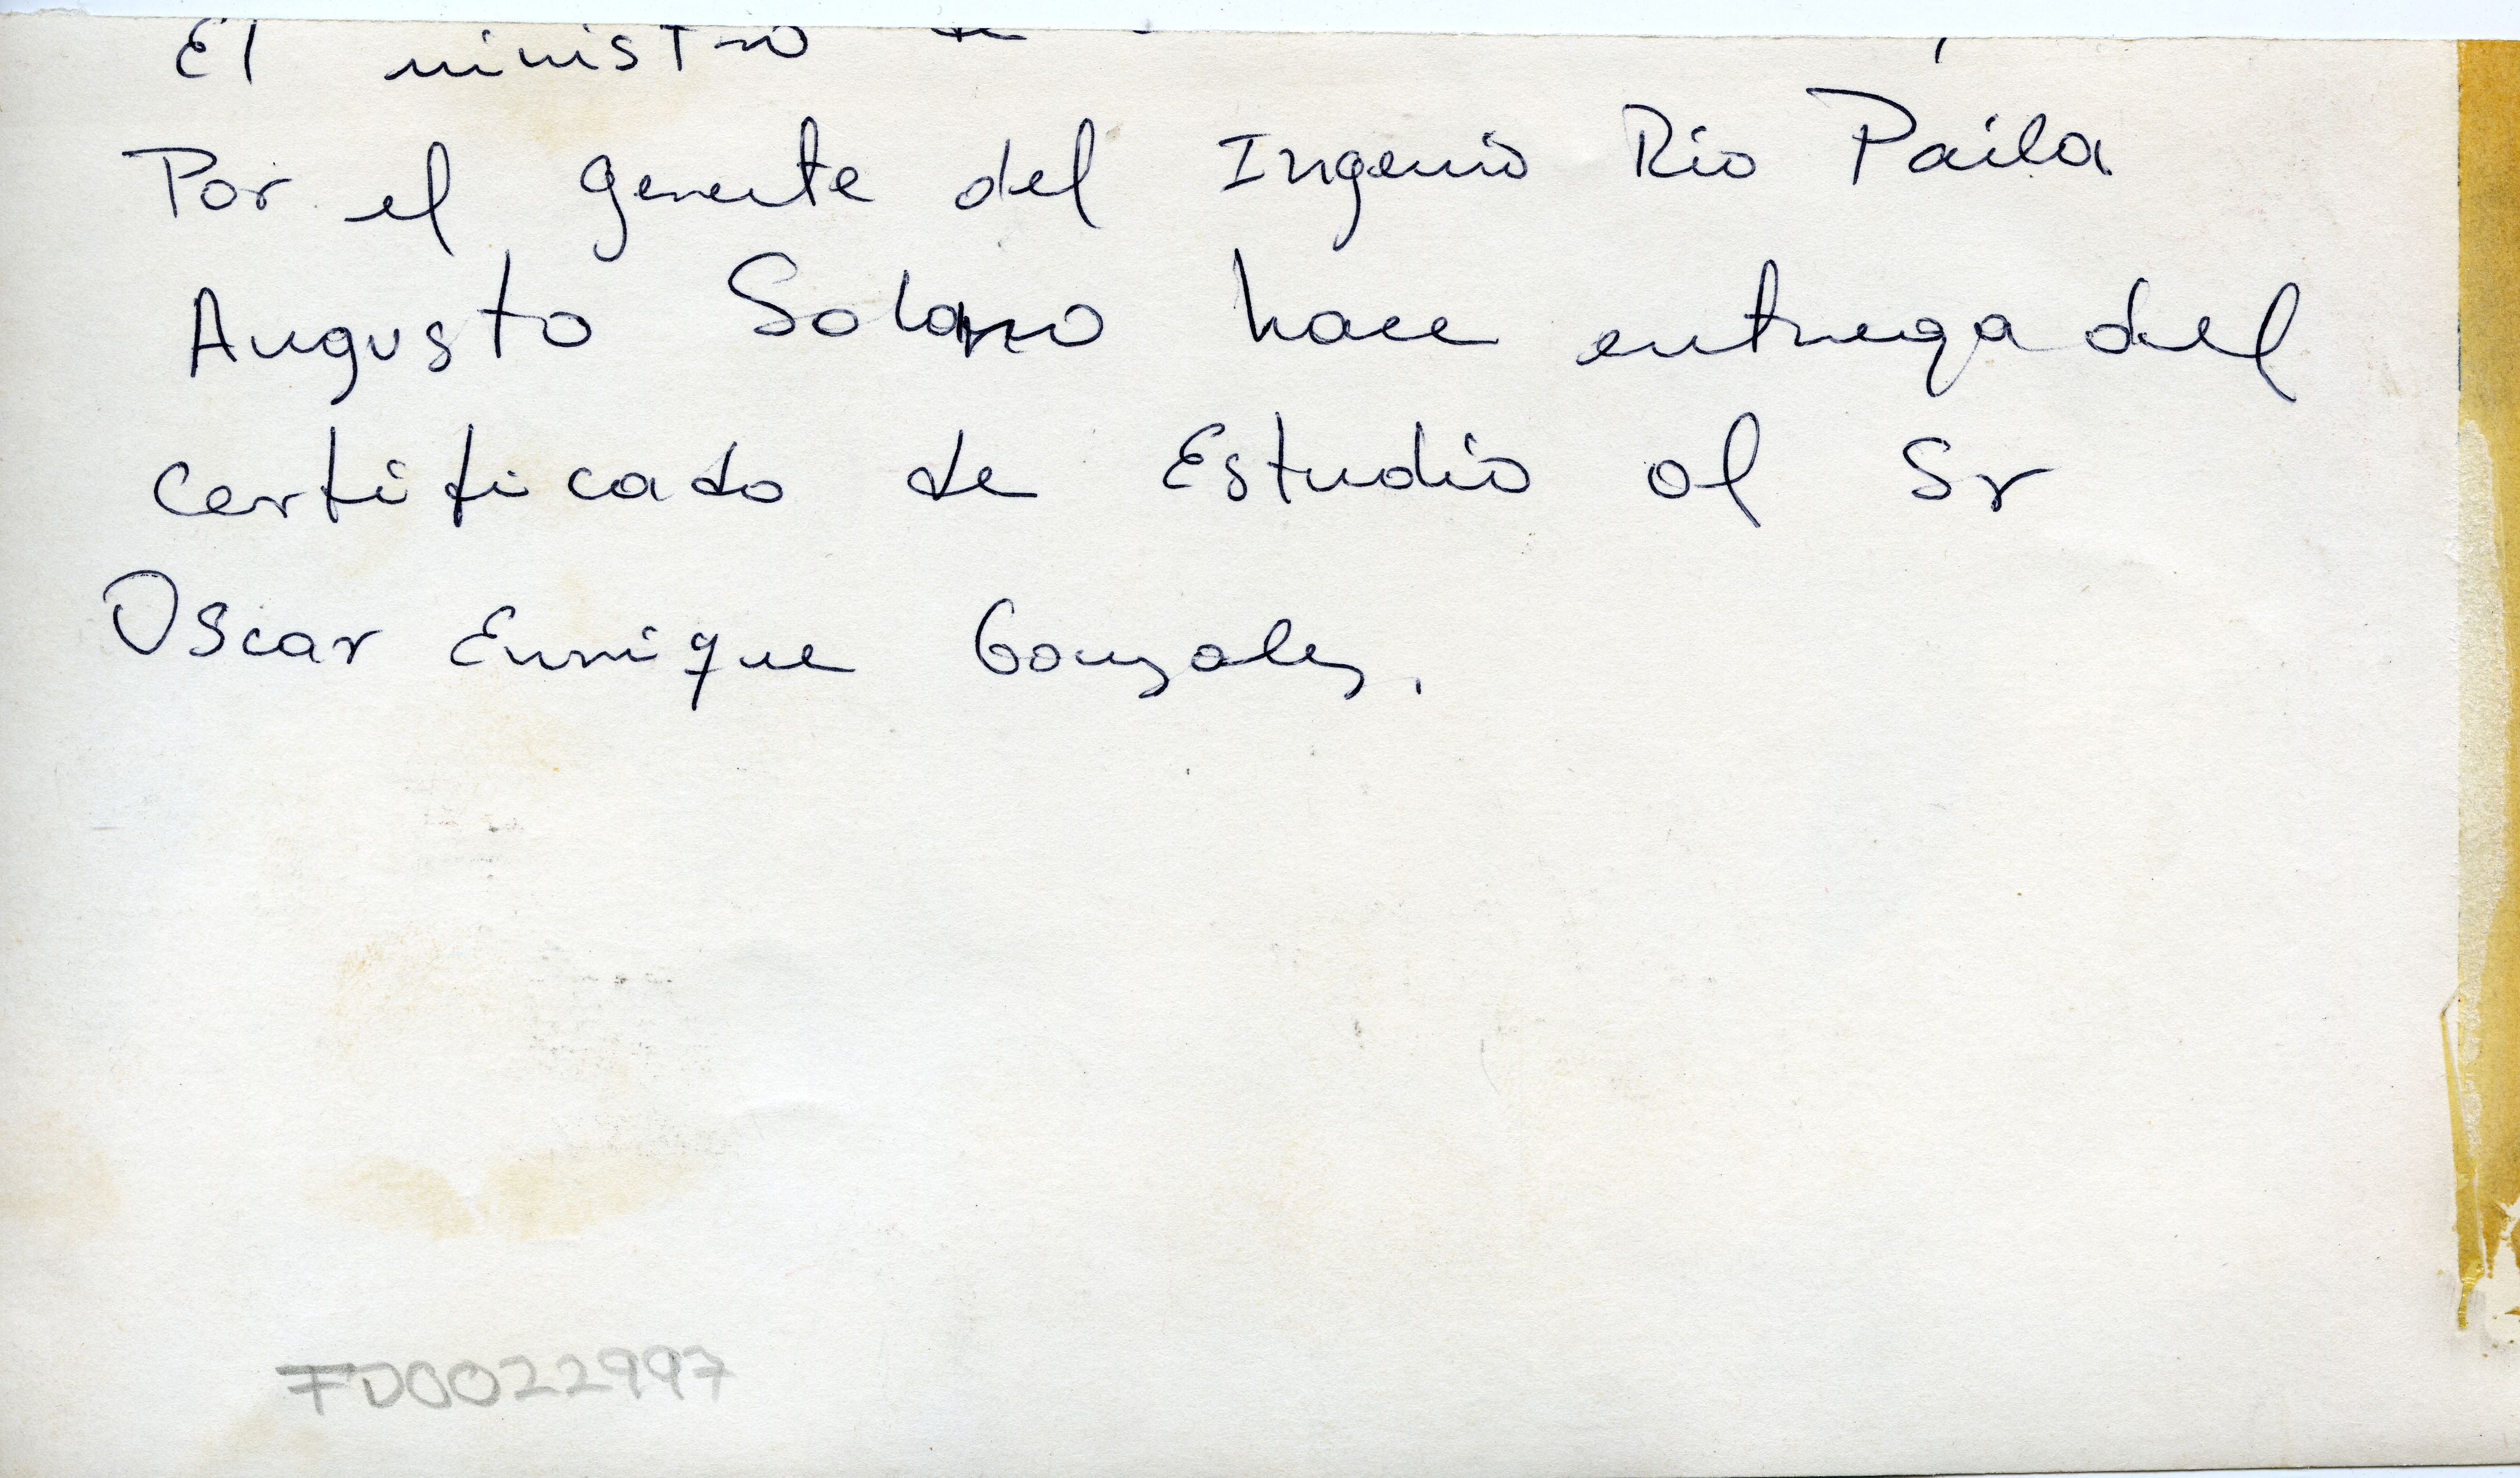 El ministro de
Por el Gerente del Ingenio Rio Paila
Augusto Solano hace entrega del
certificado de Estudio al Sr
Oscar Enrique Gonzales.
FD0022997